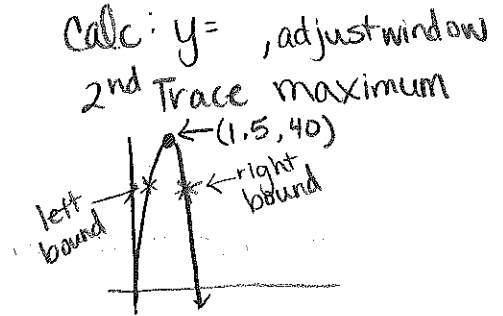 Calc: y= , adjust window
2nd Trace maximum
←(1.5, 40)
left
bound
right
bound